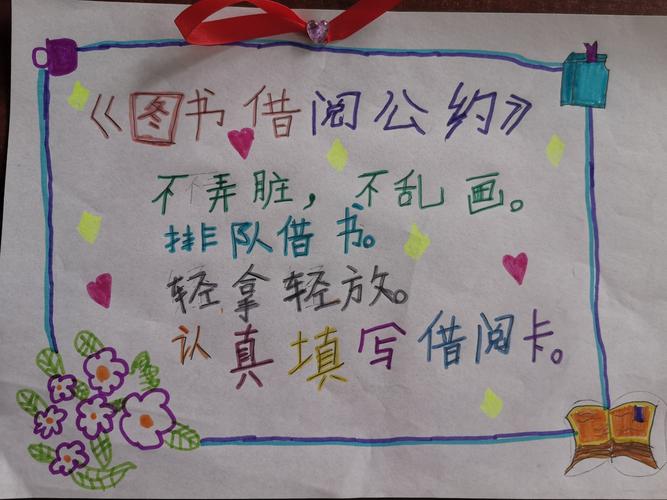 《图书借阅公约》
不弄脏，不乱画。
排队借书。
轻拿轻放。
认真填写借阅卡。